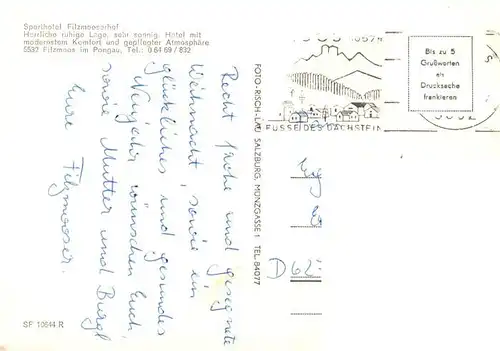 Sporthotel Filzmooserhof
Herrliche ruhige Lage, sehr sonnig. Hotel mit
modernstem Komfort und gepflegter Atmosphäre
5532 Filzmoos im Pongau, Tel.: 0 64 69 / 832
Recht frohe und gesegnete
Weihnacht, sowie ein
glückliches und gesundes
Neujahr wünschen Euch
sowie Mutter und Burgl
Eure Filzmooser.
FOTO-RISCH-LAU SALZBURG, MÜNZGASSE 1 TEL. 84077
FUSSE DES DACHSTEIN
Bis zu 5
Grußworten
als
Drucksache
frankieren
D 62
SF 10544 R